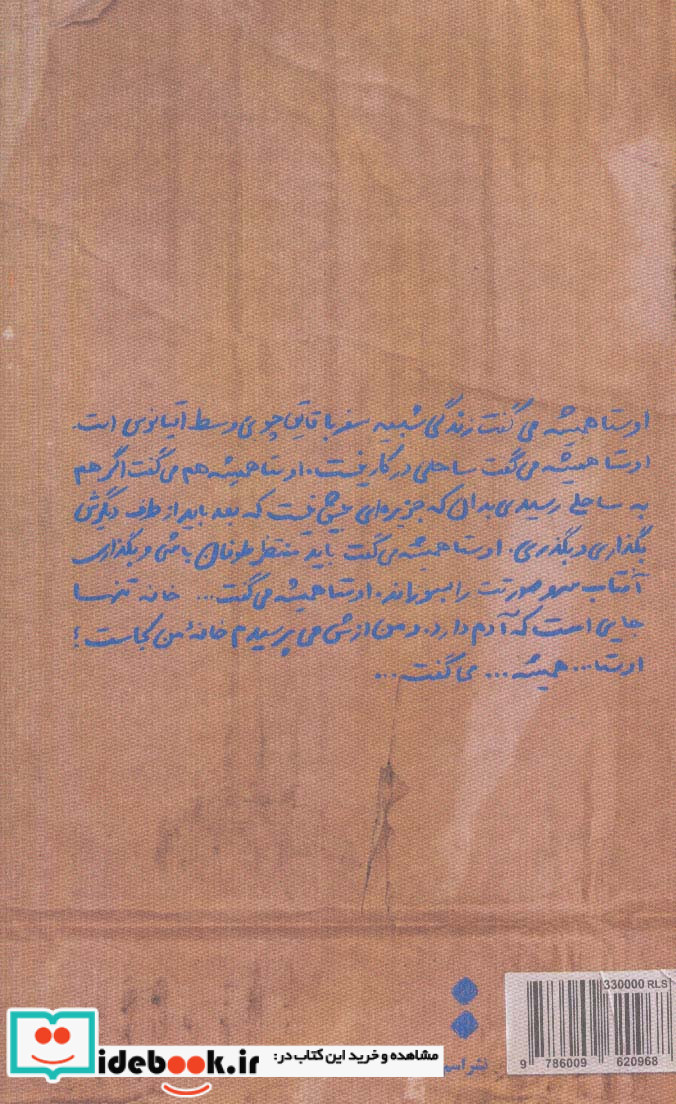 اوستا همیشه می گفت زندگی شبیه سفر با قایق چوبی وسط اقیانوس است.
اوستا همیشه می گفت ساحلی در کار نیست. اوستا همیشه هم می گفت اگر هم
به ساحلی رسیدی بدان که جزیره‌ای بیش نیست که بعد باید از طرف دیگرش
بگذاری و بگذری. اوستا همیشه می گفت باید منتظر طوفان باشی و بگذاری
آفتاب صورتت را بسوزاند. اوستا همیشه می گفت... خانه تنها
جایی است که آدم دارد. و من ازش می پرسیدم خانهٔ من کجاست؟
اوستا... همیشه... می گفت...
330000 RLS
9 786009 620968
نشر اسم
مشاهده و خرید این کتاب در:
idebook.ir